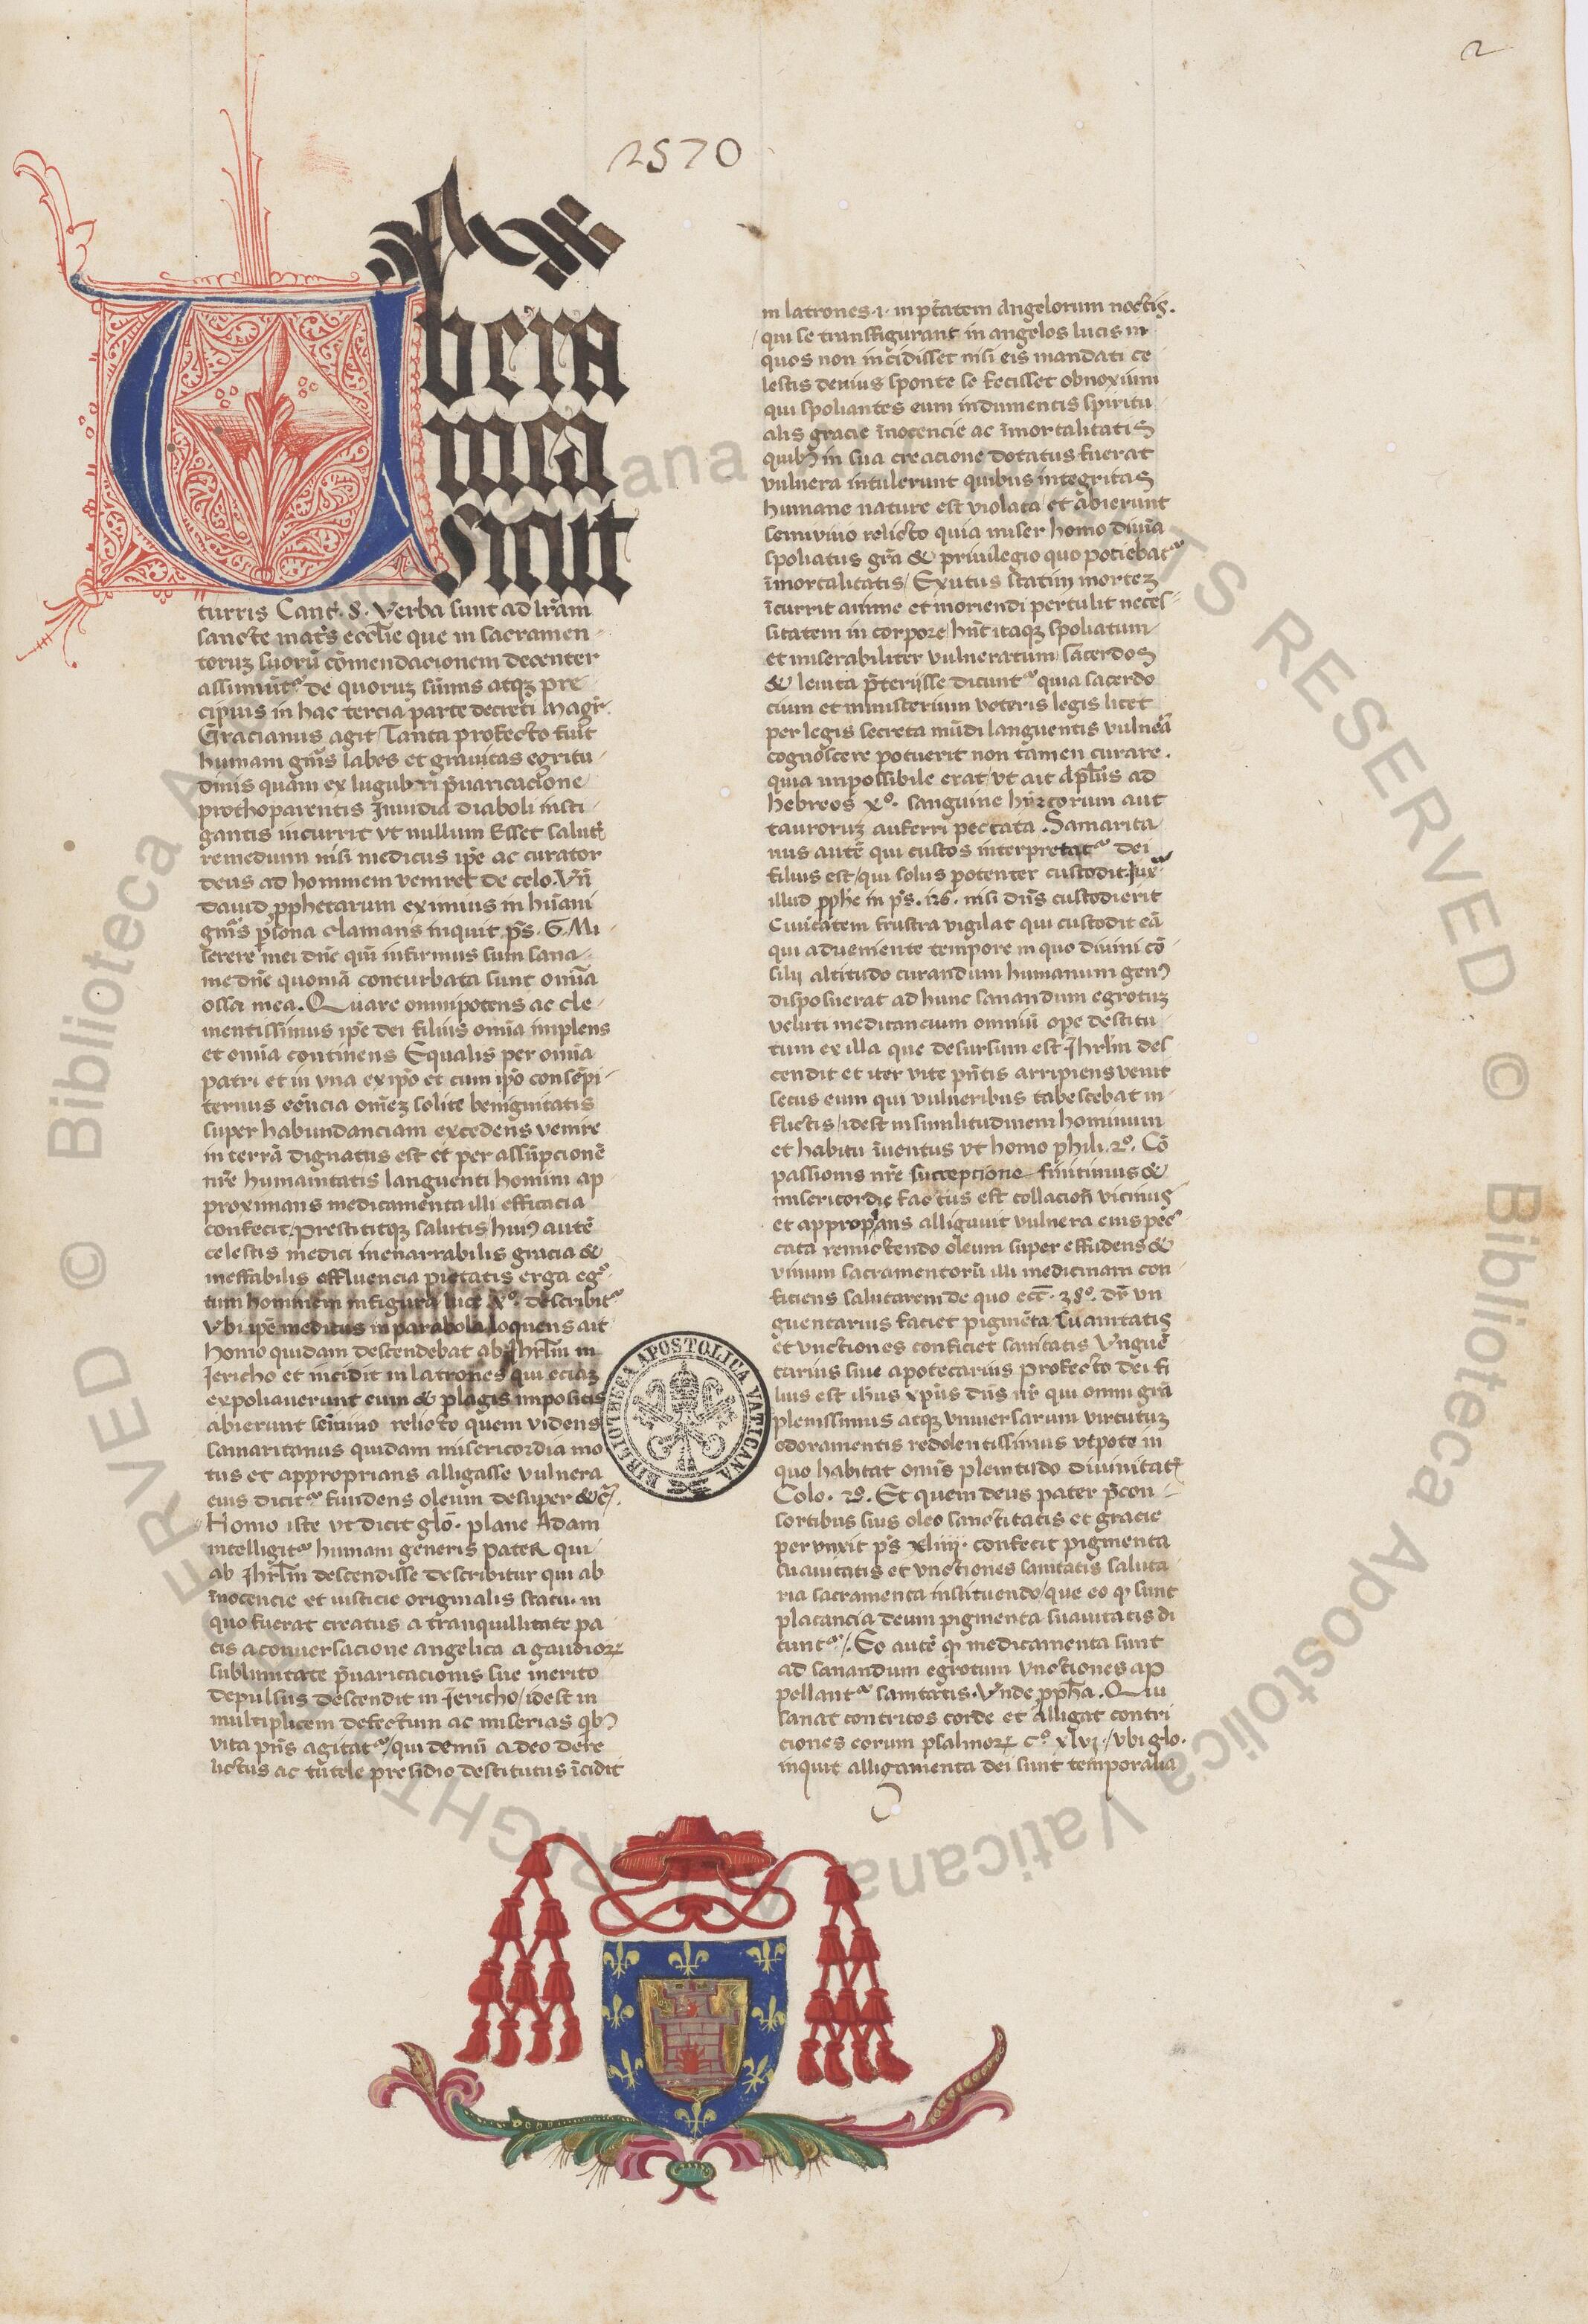 2
2570
Ubera
mea
sicut
turris Cant. 8. Verba sunt ad lr̃am
sancte mat̃s eccl̃ie que in sacramen-
toruz suorũ cõmendacionem decenter
assumũt᷑ de quoruz sũmis atqz pre
cipuis in hac tercia parte decreti Magr̃.
Gracianus agit / Tanta profecto fuit
humani gñis labes et grauitas egritu-
dinis quam ex lugubri p̃uaricacione
prothoparentis Inuidia diaboli insti-
gantis incurrit vt nullum Esset salut̃
remedium nisi medicus ip̃e ac curator
deus ad hominem veniret de celo. Vñ
dauid ꝓphetarum eximius in hũani
gñis ꝑsona clamans inquit. p̃s. 6. Mi-
serere mei dñe qm̃ infirmus sum sana-
me dñe quoniã conturbata sunt omĩa
ossa mea. Quare omnipotens ac cle-
mentissimus ip̃e dei filius omĩa implens
et omĩa continens Equalis per omĩa
patri et in vna ex ip̃o et cum ip̃o consẽpi-
ternus eẽncia om̃ez solite benignitatis
super habundanciam excedens venire
in terrã dignatus est et per assũpcionẽ
nr̃e humanitatis languenti homini ap
proximans medicamenta illi efficacia
confecit. prestititqz salutis / huiꝰ autẽ
celestis medici inenarrabilis gracia &
ineffabilis effluencia pietatis erga egꝰ-
tum hominem in figura luce xº. describit᷑
Vbi ip̃e medicus in parabola loquens ait
Homo quidam descendebat ab Jhrl̃m in
Jericho et incidit in latrones qui eciaz
expoliauerunt eum & plagis impositis
abierunt semiuiuo relicto quem videns
samaritanus quidam misericordia mo
tus et approprians alligasse vulnera
eius dicit᷑ fundens oleum desuper &c̃.
Homo iste vt dicit glõ. plane Adam
intelligit᷑ humani generis pater qui
ab Jhrl̃m descendisse describitur qui ab
ĩnocencie et iusticie originalis statu. in
quo fuerat creatus a tranquillitate pa
cis a conuersacione angelica a gaudioꝝ
sublimitate p̃uaricacionis sue merito
depulsus descendit in Jericho / idest in
multiplicem defectum ac miserias qbꝰ
vita p̃ns agitat᷑ / qui demũ adeo dere
lictus ac tutele presidio destitutus ĩcidit
in latrones .i. in p̃tatem Angelorum noctis.
qui se transfigurant in angelos lucis in
quos non incidisset nisi eis mandati ce
lestis deuius sponte se fecisset obnoxium
qui spoliantes eum indumentis spiritu
alis gracie ĩnocencie ac ĩmortalitatis
quibꝰ in sua creacione dotatus fuerat
vulnera intulerunt quibus integritas
humane nature est violata / et abierunt
semiuiuo relicto quia miser homo diuĩa
spoliatus gr̃a & priuilegio quo pociebat᷑
ĩmortalitatis / Exutus statim mortez
ĩcurrit anime et moriendi pertulit neces-
sitatem in corpore / hũc itaqz spoliatum
et miserabiliter vulneratum sacerdos
& leuita p̃terijsse dicunt᷑ quia sacerdo
cium et ministerium veteris legis licet
per legis secreta mũdi languentis vulnera
cognoscere potuerit non tamen curare.
quia impossibile erat vt ait Ap̃lus ad
hebreos xº. sanguine hyrcorum aut
tauroruz auferri peccata. Samarita
nus autẽ qui custos interpretat᷑ dei
filius est / qui solus potenter custodit Jux̃
illud ꝓph̃e in p̃s. 126. nisi dñs custodierit
Ciuitatem frustra vigilat qui custodit eã
qui adueniente tempore in quo diuini cõ-
silij altitudo curandum humanum genꝰ
disposuerat ad hunc sanandum egrotuz
veluti medicancium omniũ ope destitu-
tum ex illa que desursum est Jhrl̃m des
cendit et iter vite p̃ntis arripiens venit
secus eum qui vulneribus tabescebat in-
flictis / idest in similitudinem hominum
et habitu ĩuentus vt homo phili. 2º. Cõ
passionis nr̃e succepcione finitimus &
misericordie factus est collacioñ vicinus
et approp̃ans alligauit vulnera eius pec̃
cata remictendo oleum super effũdens &
vinum sacramentorũ illi medicinam con-
ficiens salutarem de quo ecc̃. 38º. dr̃ vn
guentarius faciet pigmẽta suauitatis
et vnctiones conficiet sanitatis Vnguẽ
tarius siue apotecarius profecto dei fi
lius est ih̃us xp̃us dñs nr̃ qui omni gr̃a
plenissimus atqz vniuersarum virtutuz
odoramentis redolentissimus vtpote in
quo habitat omĩs plenitudo diuinitat̃
Colo. 2º. Et quem deus pater p̃con-
sortibus suis oleo sanctitatis et gracie
perunxit p̃s xliiij. confecit pigmenta
suauitatis et vnctiones sanitatis saluta-
ria sacramenta instituendo / que eo ꝙ sunt
placancia deum pigmenta suauitatis di
cunt᷑ /. Eo autẽ ꝙ medicamenta sunt
ad sanandum egrotum vnctiones ap
pellant᷑ sanitatis. Vnde ꝓph̃a. Qui
sanat contritos corde et alligat contri
ciones eorum psalmoꝝ cº xlvj. / vbi glo.
inquit alligamenta dei sunt temporalia
BIBLIOTECA APOSTOLICA VATICANA
© Biblioteca Apostolica Vaticana ALL RIGHTS RESERVED
© Biblioteca Apostolica Vaticana ALL RIGHTS RESERVED